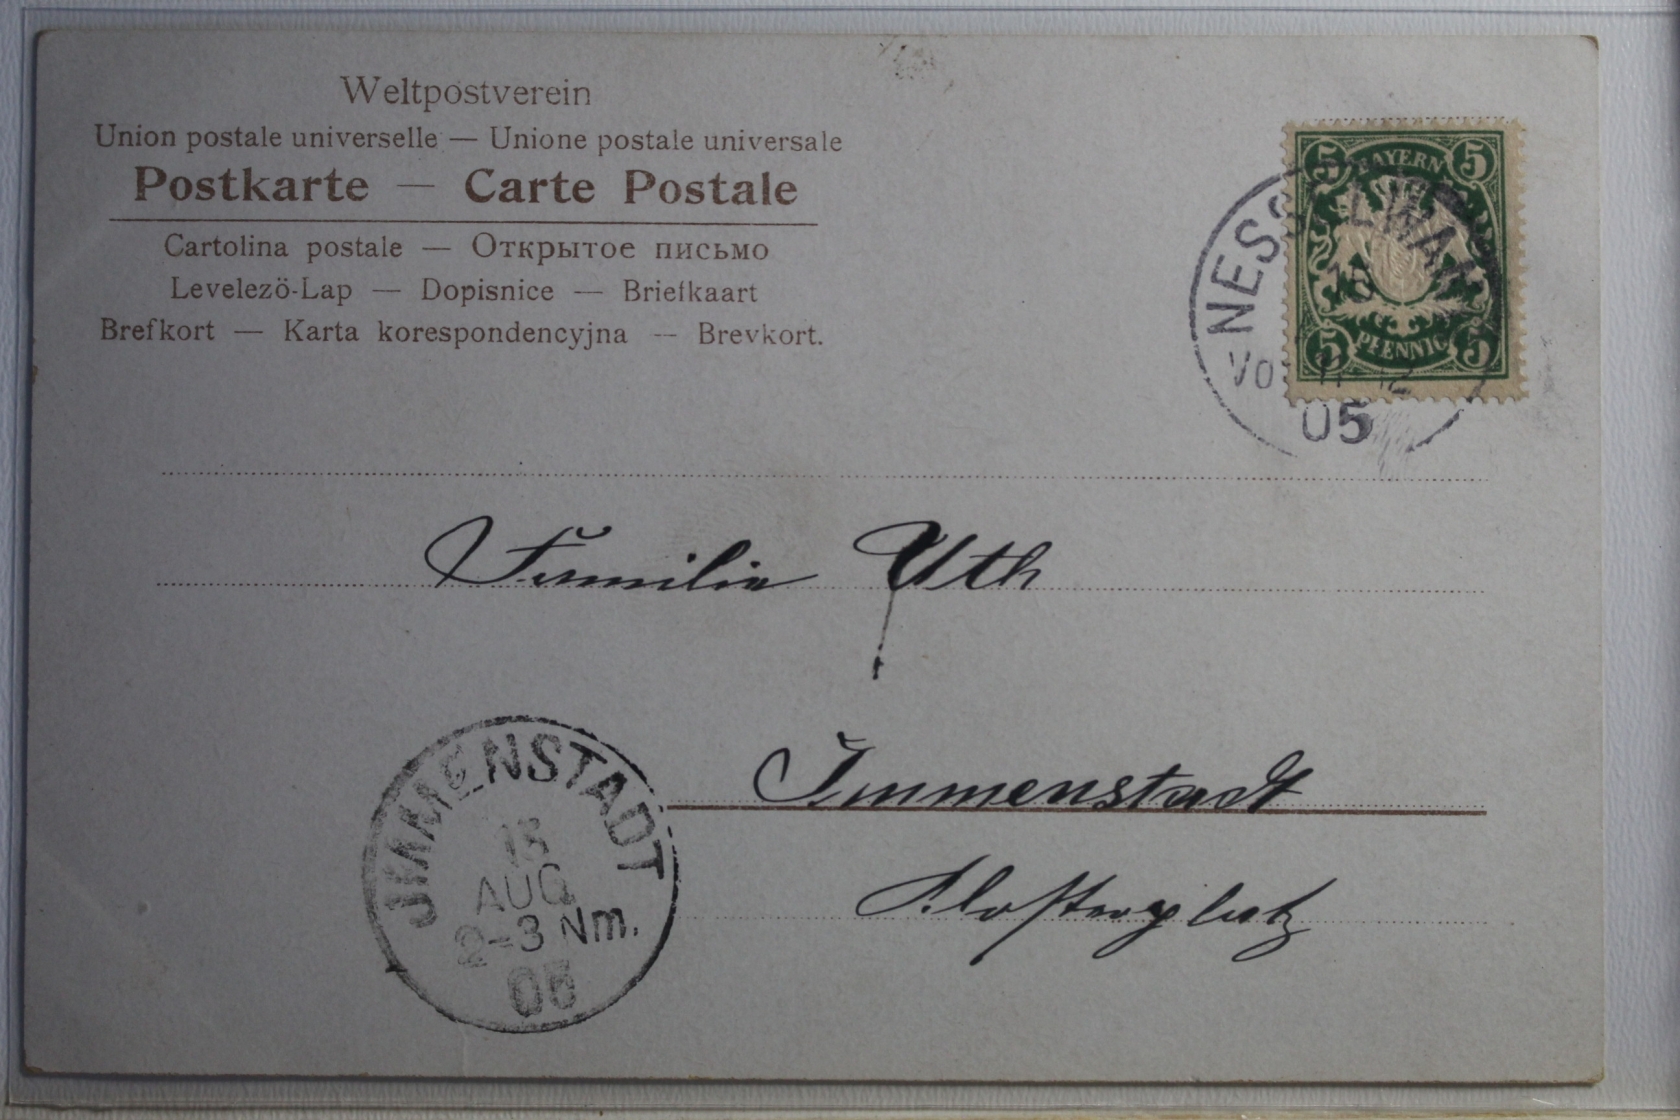 Weltpostverein
Union postale universelle — Unione postale universale
Postkarte — Carte Postale
Cartolina postale — Открытое письмо
Levelezö-Lap — Dopisnice — Briefkaart
Brefkort — Karta korespondencyjna — Brevkort.
5 BAYERN 5
5 PFENNIG 5
NESSELWANG
05
Familie Uth
Immenstadt
Klosterplatz
IMMENSTADT
AUG
2-3 Nm.
05